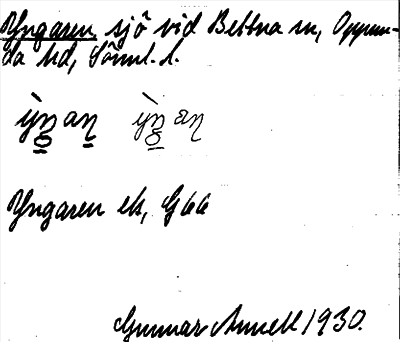 Yngaren sjö vid Bettna sn, Oppun-
da hd, Söml. l.
Yngaren ek, G66
Gunnar Annell 1930.